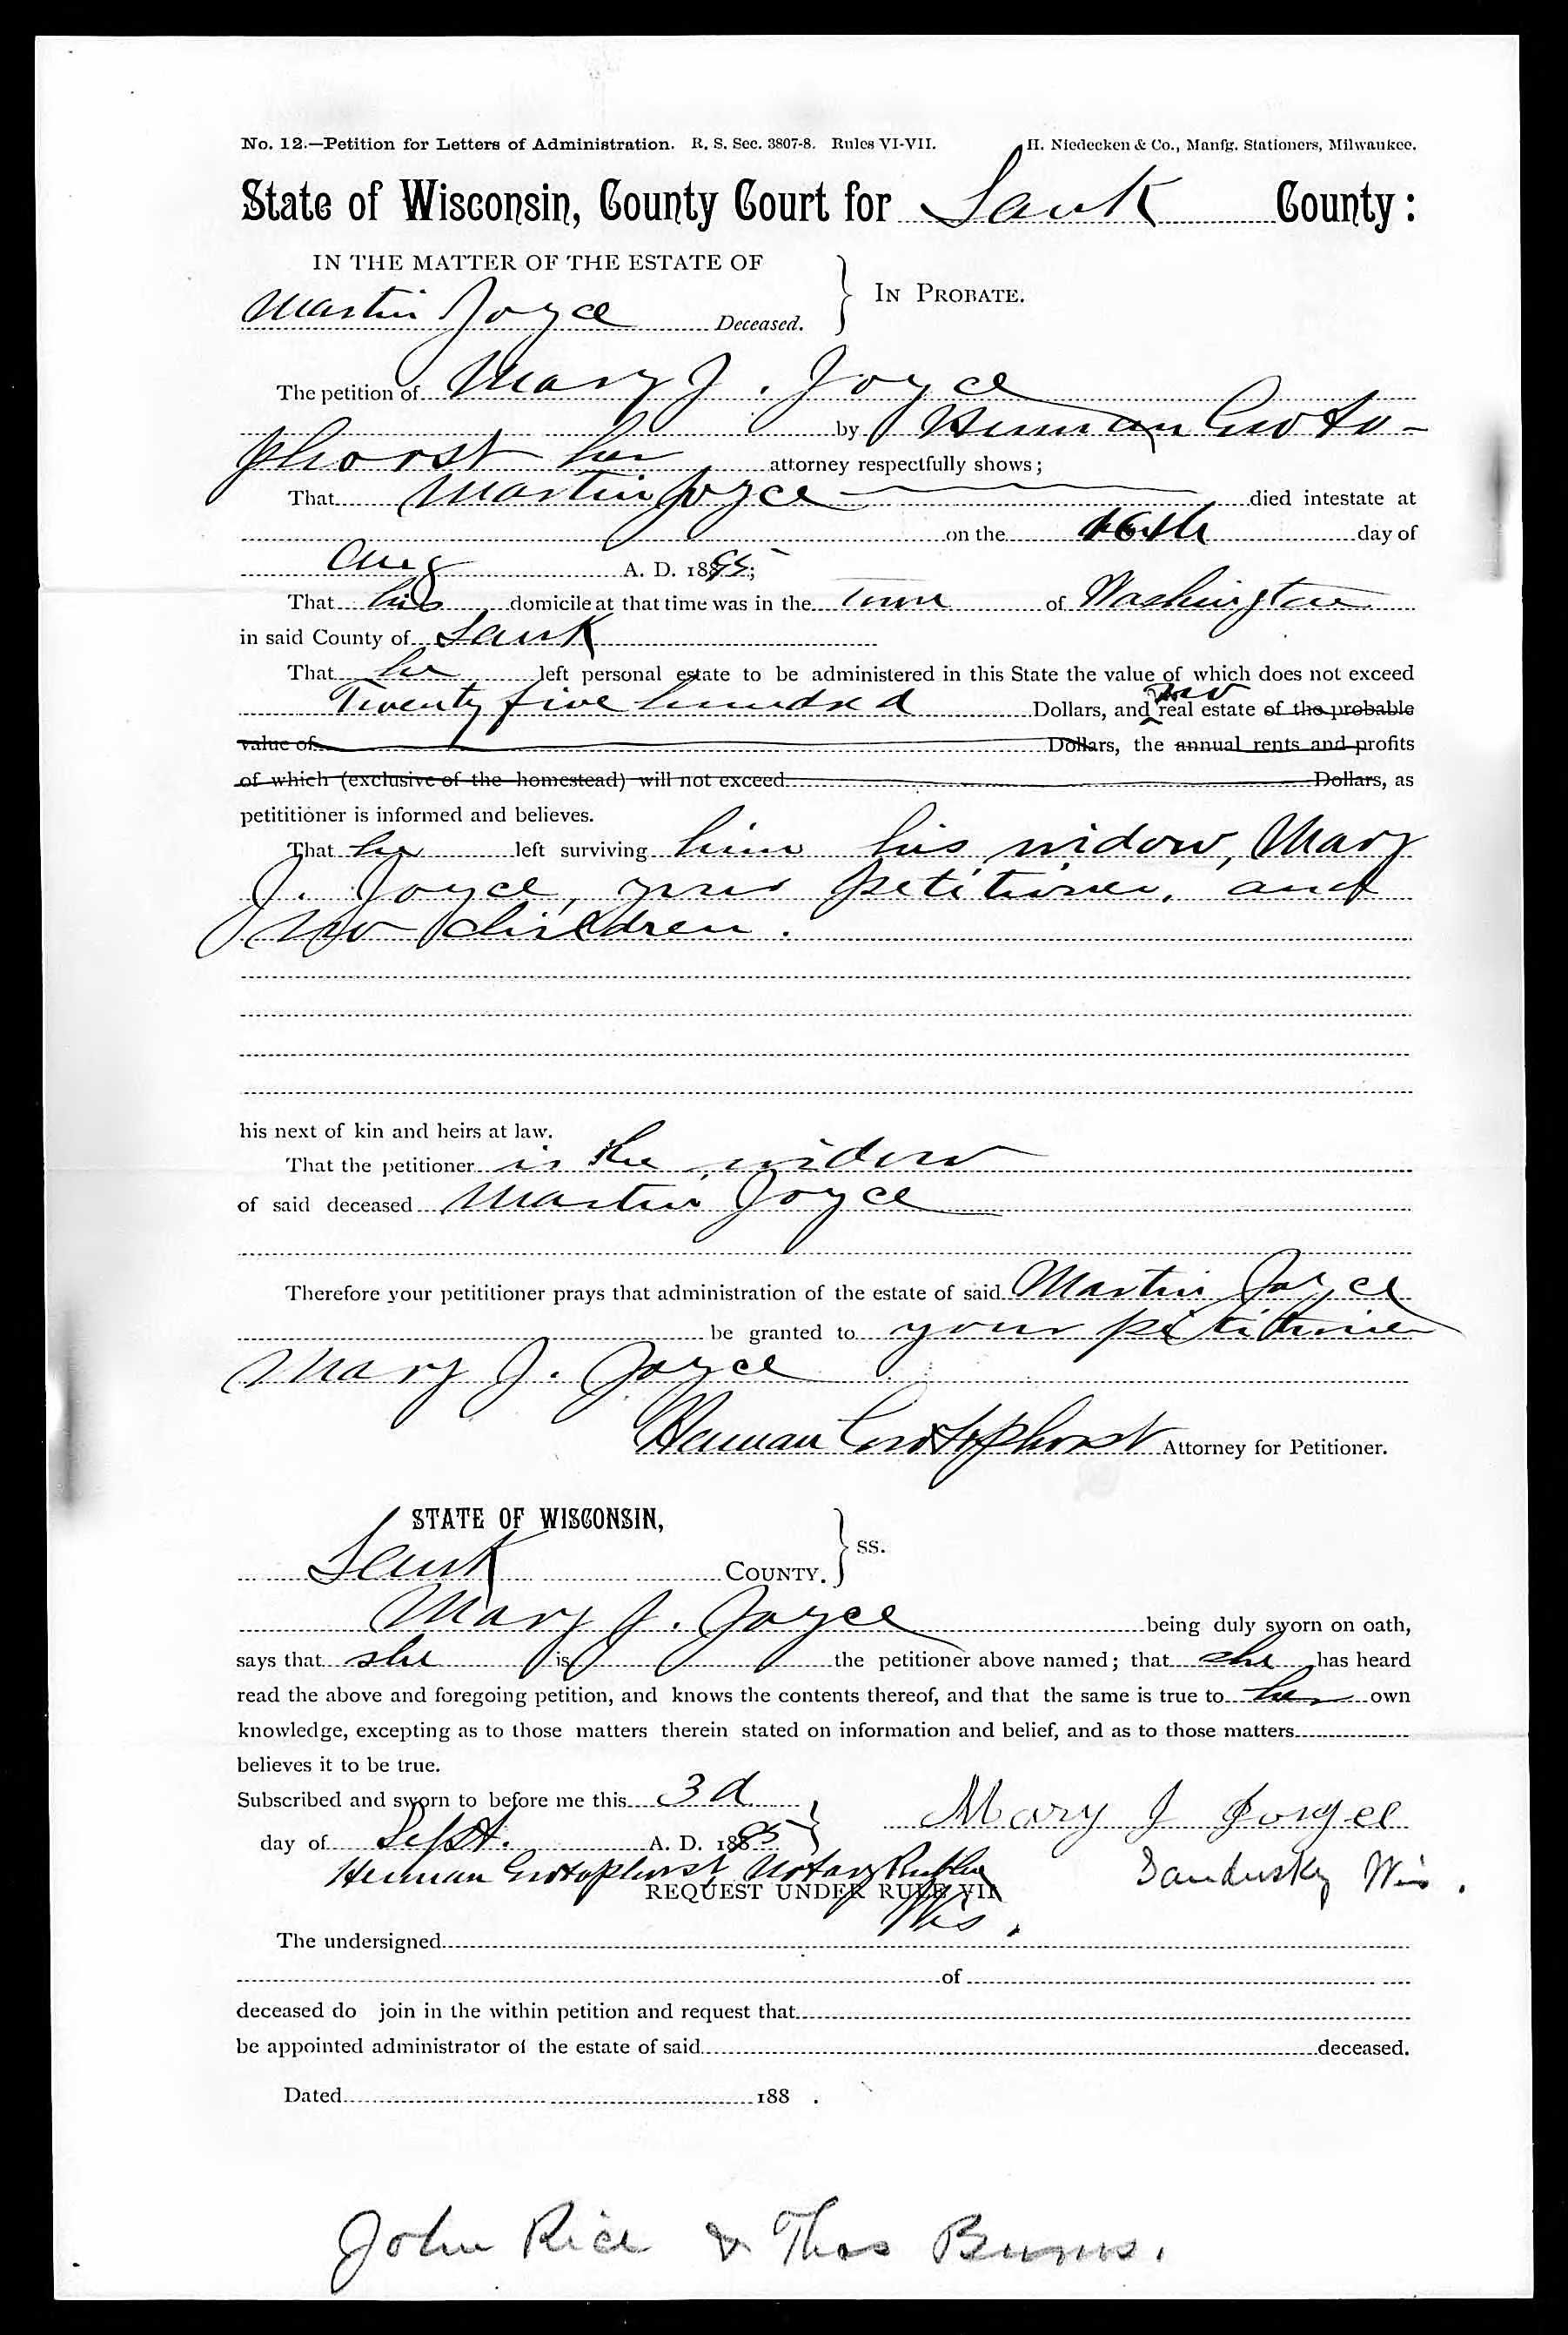 No. 12.—Petition for Letters of Administration. R. S. Sec. 3807-8. Rules VI-VII. H. Niedecken & Co., Manfg. Stationers, Milwaukee.
State of Wisconsin, County Court for Sauk County:
IN THE MATTER OF THE ESTATE OF
IN PROBATE.
Martin Joyce Deceased.
The petition of Mary J. Joyce
by Herman Groto-
phorst her attorney respectfully shows;
That Martin Joyce died intestate at
on the day of
Aug A. D. 1895;
That his domicile at that time was in the Town of Washington
in said County of Sauk
That he left personal estate to be administered in this State the value of which does not exceed
no
Twenty five hundred Dollars, and real estate of the probable
value of Dollars, the annual rents and profits
of which (exclusive of the homestead) will not exceed Dollars, as
petititioner is informed and believes.
That he left surviving him his widow, Mary
J. Joyce, your petitioner, and
no children.
his next of kin and heirs at law.
That the petitioner is the widow
of said deceased Martin Joyce
Therefore your petititioner prays that administration of the estate of said Martin Joyce
be granted to your petitioner
Mary J. Joyce
Herman Grotophorst Attorney for Petitioner.
STATE OF WISCONSIN,
ss.
Sauk COUNTY.
Mary J. Joyce being duly sworn on oath,
says that she is the petitioner above named; that she has heard
read the above and foregoing petition, and knows the contents thereof, and that the same is true to her own
knowledge, excepting as to those matters therein stated on information and belief, and as to those matters
believes it to be true.
Subscribed and sworn to before me this 3d
Mary J Joyce
day of Sept. A. D. 1895
Herman Grotophorst Notary Public
Sandusky Wis.
REQUEST UNDER RULE VII
Wis.
The undersigned
of
deceased do join in the within petition and request that
be appointed administrator of the estate of said deceased.
Dated 188 .
John Rice & Thos Burns.